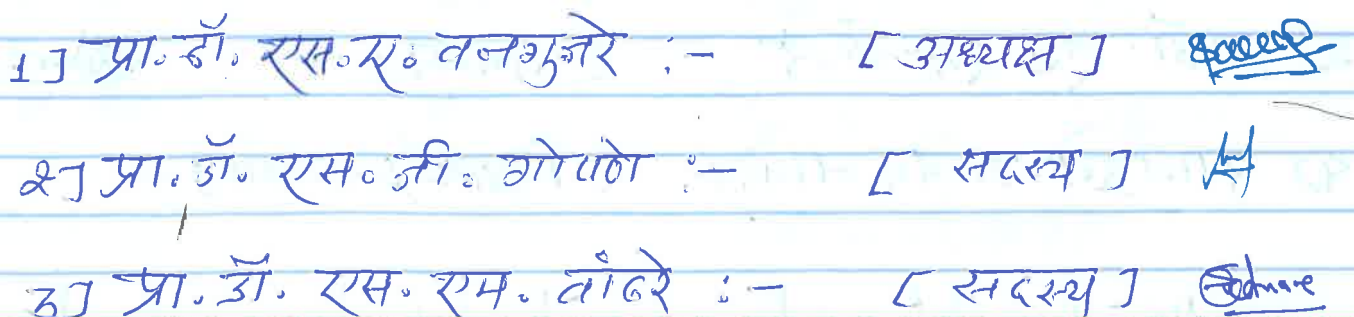 1] प्रा. डॉ. एस. ए. वनगुजरे :- [ अध्यक्ष ]
२] प्रा. डॉ. एस. जी. गोवणे :- [ सदस्य ]
३] प्रा. डॉ. एस. एम. वांढरे :- [ सदस्य ]